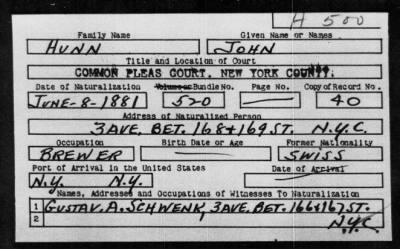 H 500
Family Name Given Name or Names
HUNN JOHN
Title and Location of Court
COMMON PLEAS COURT, NEW YORK COUNTY.
Date of Naturalization Volume or Bundle No. Page No. Copy of Record No.
JUNE-8-1881 520 — 40
Address of Naturalized Person
3 AVE. BET. 168+169 ST. N.Y.C.
Occupation Birth Date or Age Former Nationality
BREWER — SWISS
Port of Arrival in the United States Date of Arrival
N.Y. N.Y. —
Names, Addresses and Occupations of Witnesses To Naturalization
1 GUSTAV. A. SCHWENK, 3 AVE. BET. 166+167 ST.
2 N.Y.C.